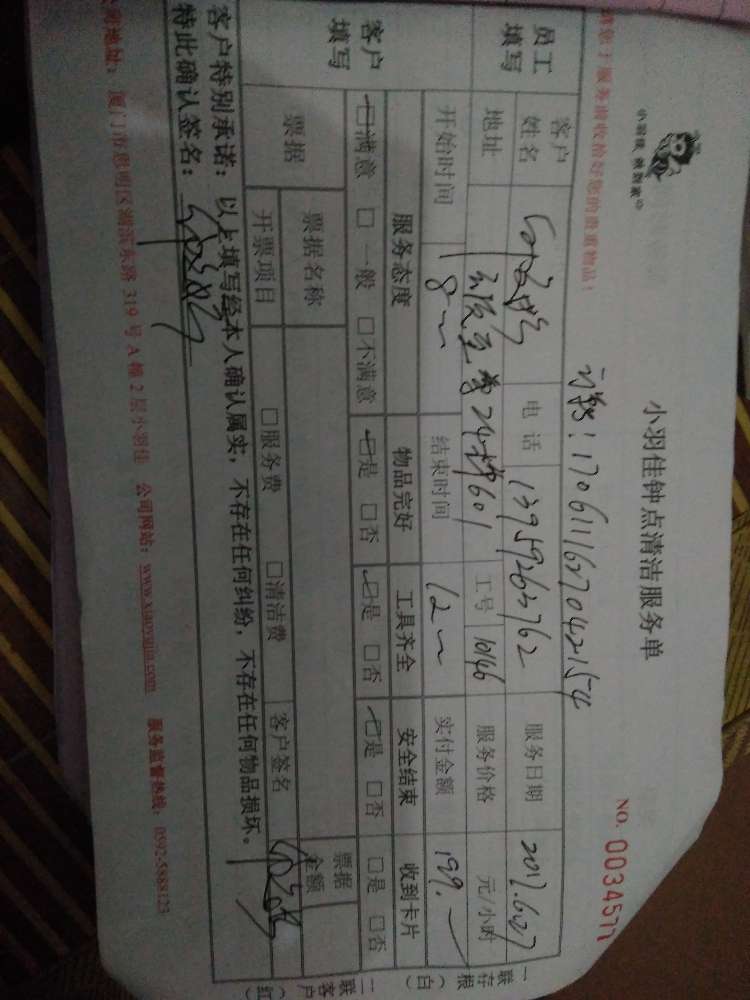 小羽佳 做到家
小羽佳钟点清洁服务单
NO. 0034577
您于服务前收拾好您的贵重物品！
1706111627042154
员工填写
客户姓名
电话 13959263762
服务日期 2017.6.27
地址 24 601
工号 10146
服务价格 元/小时
开始时间 8
结束时间 12
实付金额 199.
客户填写
服务态度 物品完好 工具齐全 安全结束 收到卡片
☑满意 □一般 □不满意 ☑是 □否 ☑是 □否 ☑是 □否 □是 □否
票据 票据名称 票据金额
开票项目 □服务费 □清洁费 客户签名
客户特别承诺：以上填写经本人确认属实，不存在任何纠纷，不存在任何物品损坏。
特此确认签名：
司地址：厦门市思明区湖滨东路 319 号 A 幢 2 层小羽佳 公司网站：www.xiaoyujia.com 服务监督热线：0592-5888123
一联存根（白）
二联客户（红